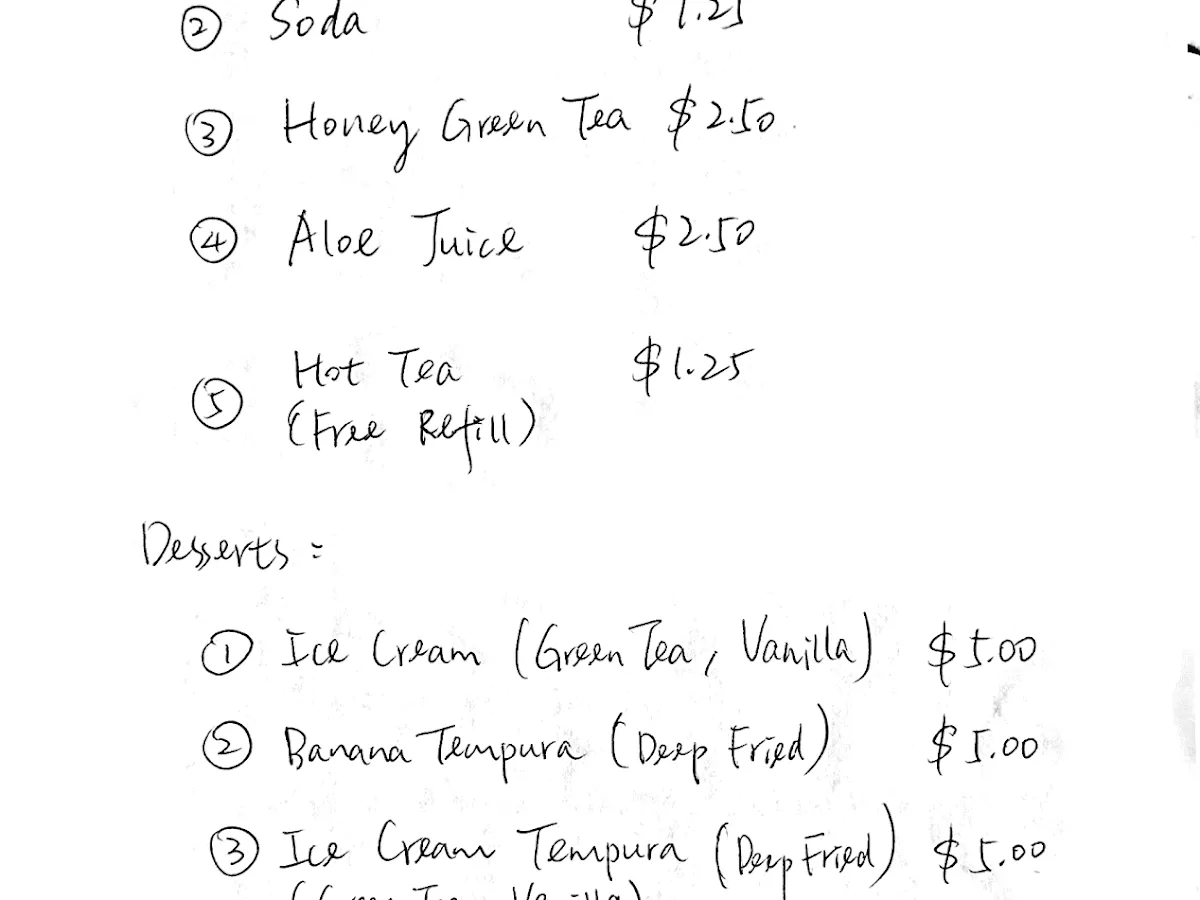 ② Soda $1.25
③ Honey Green Tea $2.50
④ Aloe Juice $2.50
⑤ Hot Tea $1.25
(Free Refill)
Desserts :
① Ice Cream (Green Tea, Vanilla) $5.00
② Banana Tempura (Deep Fried) $5.00
③ Ice Cream Tempura (Deep Fried) $5.00
(Green Tea, Vanilla)